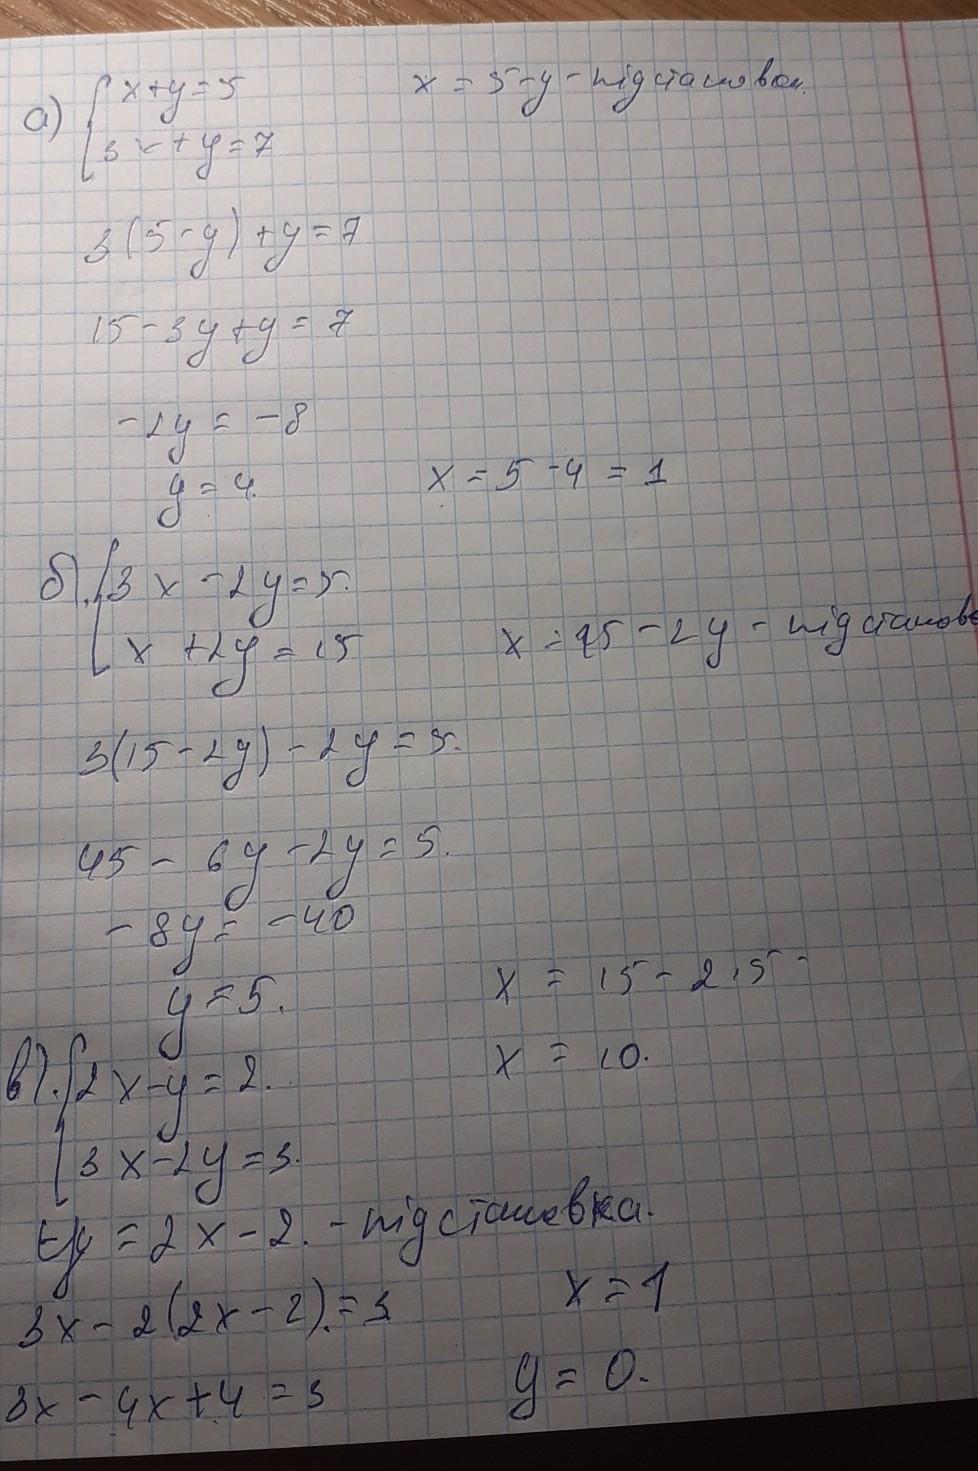 а) { x+y=5    x = 5-y - підстановка.
3x+y=7
3(5-y)+y=7
15-3y+y=7
-2y = -8
y=4.    x=5-4=1
б). { 3x-2y=5.
x+2y=15    x=15-2y - підстанов
3(15-2y)-2y=5.
45-6y-2y=5.
-8y=-40
y=5.    x = 15-2·5-
в). { 2x-y=2.    x = 10.
3x-2y=3.
y=2x-2. - підстановка.
3x-2(2x-2)=3    x=1
3x-4x+4=3    y=0.